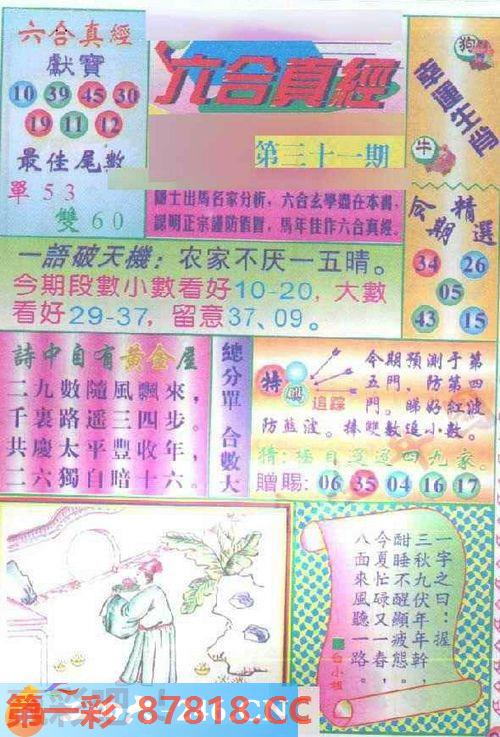 六合真經
獻寶
10 39 45 30
19 11 12
最佳尾數
單53
雙60
六合真經
第三十一期
隱士出馬名家分析，六合玄學盡在本書，
說明正宗謹防假冒，馬年佳作六合真經。
狗
幸運生肖
牛
今期精選
34 26
05
43 15
一語破天機：农家不厌一五晴。
今期段數小數看好10-20，大數
看好29-37，留意37、09。
詩中自有黃金屋
二九數隨風飄來，
千裏路遥三四步。
共慶太平豐收年，
二六獨自暗十六。
總分單 合數大
特
追踪
今期預測于第
五門，防第四
門。睇好紅波
防藍波。捧雙數追小數。
猜：
四九家。
贈賜：06 35 04 16 17
一字之曰：握
三秋九伏年年幹，
酣睡不醒顯疲態。
今夏忙碌又一春，
八面來風聽一路。
第一彩 87818.CC